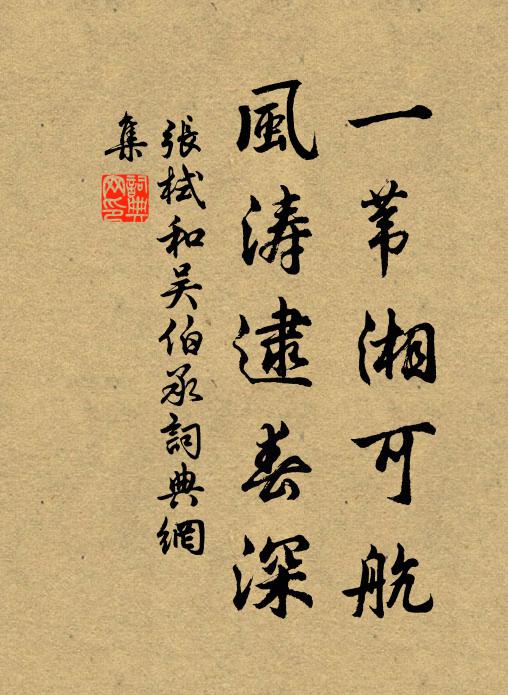 一苇湘可航
風涛逮春深
張栻和吴伯承詞典網
集
詞典